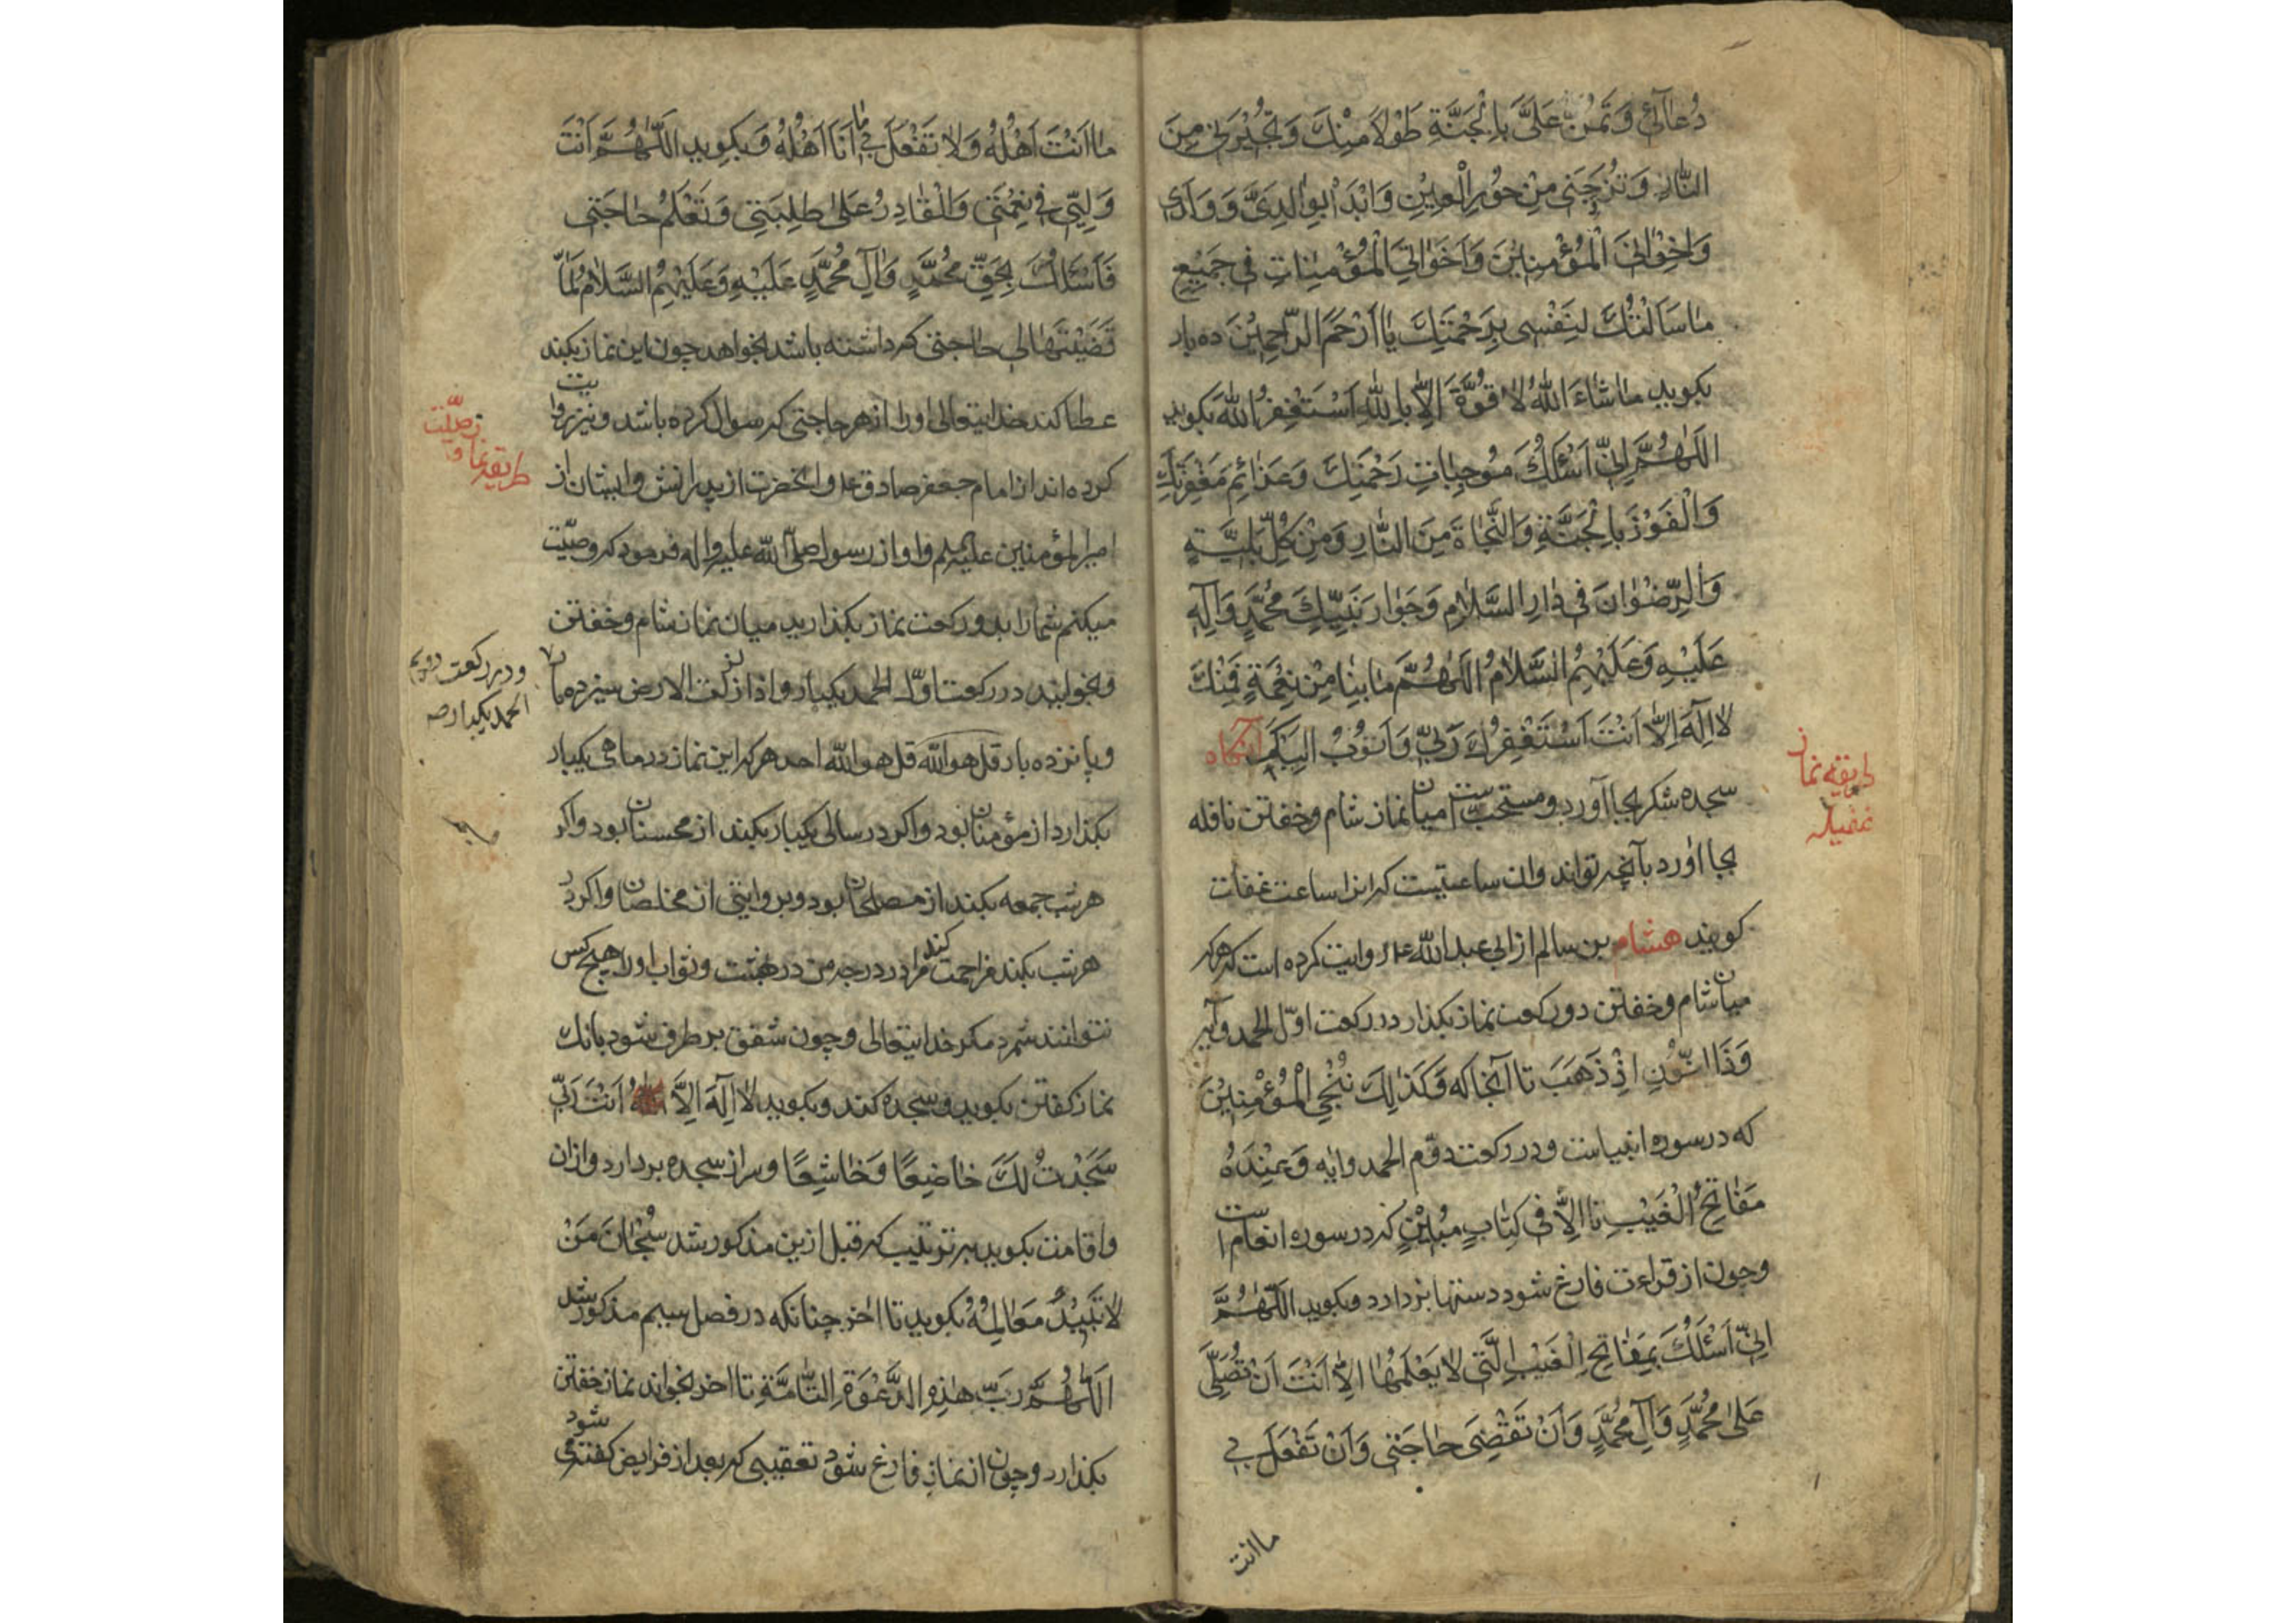 دُعٰآئي وَتَمُنَّ عَلَيَّ بِالْجَنَّةِ طَوْلاً مِنْكَ وَتُجْيُرَني مِنَ
النّٰارِ وَتُزَوِّجَني مِنْ حُورِ الْعِيْنِ وَابْدَأْ بِوٰالِدَيَّ وَوَلَدي
وَاِخْوٰانِيَ الْمُؤْمِنِيْنَ وَاَخَوٰاتِيَ الْمُؤْمِنٰاتِ في جَمِيْعِ
مٰا سَاَلْتُكَ لِنَفْسي بِرَحْمَتِكَ يٰا اَرْحَمَ الرّٰاحِمِيْنَ ده بار
بکوید مٰا شٰاءَ اللّٰهُ لاٰ قُوَّةَ اِلاّٰ بِاللّٰهِ اَسْتَغْفِرُ اللّٰهَ بکوید
اَللّٰهُمَّ اِنّي اَسْئَلُكَ مُوجِبٰاتِ رَحْمَتِكَ وَعَزٰائِمَ مَغْفِرَتِكَ
وَالْفَوْزَ بِالْجَنَّةِ وَالنَّجٰاةَ مِنَ النّٰارِ وَمِنْ كُلِّ بَلِيَّةٍ
وَالرِّضْوٰانَ في دٰارِ السَّلاٰمِ وَجَوٰارَ نَبِيِّكَ مُحَمَّدٍ وَاٰلِهِ
عَلَيْهِ وَعَلَيْهِمُ السَّلاٰمُ اَللّٰهُمَّ مٰا بِنٰا مِنْ نِعْمَةٍ فَمِنْكَ
لاٰ اِلٰهَ اِلاّٰ اَنْتَ اَسْتَغْفِرُكَ رَبّي وَاَتُوبُ اِلَيْكَ آنکاه
طریقه نماز
غفیله
سجده شکر بجا آورد و مستحب است میان نماز شام و خفتن نافله
بجا اورد بآنچه تواند وان ساعتیست که انرا ساعت غفلت
کویند هشام بن سالم از ابی عبدالله ع روایت کرده است که هرکه
میان شام و خفتن دو رکعت نماز بکذارد در رکعت اوّل الحمد و آیه
وَذَا النُّونِ اِذْ ذَهَبَ تا آنجا که وَكَذٰلِكَ نُنْجِي الْمُؤْمِنِيْنَ
که در سوره انبیاست و در رکعت دوّم الحمد و ایه وَعِنْدَهُ
مَفٰاتِحُ الْغَيْبِ تا اِلاّٰ في كِتٰابٍ مُبِيْنٍ که در سوره انعام است
و چون از قراءت فارغ شود دستها بردارد و بکوید اَللّٰهُمَّ
اِنّي اَسْئَلُكَ بِمَفٰاتِحِ الْغَيْبِ الَّتي لاٰ يَعْلَمُهٰا اِلاّٰ اَنْتَ اَنْ تُصَلِّيَ
عَلىٰ مُحَمَّدٍ وَآلِ مُحَمَّدٍ وَاَنْ تَقْضِيَ حٰاجَتي وَاَنْ تَفْعَلَ بي
ما انت
مٰا اَنْتَ اَهْلُهُ وَلاٰ تَفْعَلَ بي مٰا اَنَا اَهْلُهُ وَ بکوید اَللّٰهُمَّ اَنْتَ
وَلِيّي في نِعْمَتي وَالْقٰادِرُ عَلىٰ طَلِبَتي وَتَعْلَمُ حٰاجَتي
فَاَسْئَلُكَ بِحَقِّ مُحَمَّدٍ وَآلِ مُحَمَّدٍ عَلَيْهِ وَعَلَيْهِمُ السَّلاٰمُ لَمّٰا
قَضَيْتَهٰا لي حاجتی که داشته باشد بخواهد چون این نماز بکند
عطا کند خدایتعالی اورا از هر حاجتی که سوال کرده باشد و نیز روایت
طریقه نماز وصیّت
کرده اند از امام جعفر صادق ع و انحضرت از پدرانش و ایشان از
امیرالمؤمنین علیه‌السلم و او از رسول صلّی الله علیه واله فرمود که وصیّت
میکنم شما را بدو رکعت نماز بکذارید میان نماز شام و خفتن
و بخوانید در رکعت اوّل الحمد یکبار و اذا زلزلت الارض سیزده بار
و در رکعت دویم
الحمد یکبار صه
و پانزده بار قل هو الله قل هو الله احد هرکه این نماز در ماهی یکبار
بکذارد از مؤمنان بود و اکر در سالی یکبار بکند از محسنان بود و اکر
هر شب جمعه بکند از مصلحان بود و بروایتی از مخلصان و اکر در
هر شب بکند مزاحمت کند مرا در درجه من در بهشت و ثواب اورا هیچ کس
نتوانند شمرد مکر خدایتعالی و چون شفق بر طرف شود بانك
نماز کفتن بکوید و سجده کند و بکوید لاٰ اِلٰهَ اِلاَّ اَنْتَ رَبّي
سَجَدْتُ لَكَ خٰاضِعًا وَخٰاشِعًا و سر از سجده بردارد و اذان
و اقامت بکوید بهر ترتیب که قبل ازین مذکور شد سُبْحٰانَ مَنْ
لاٰ تَبِيْدُ مَعٰالِمُهُ بکوید تا اخر چنانکه در فصل سیم مذکور شد
اَللّٰهُمَّ رَبَّ هٰذِهِ الدَّعْوَةِ التّٰامَّةِ تا اخر بخواند نماز خفتن
بکذارد و چون از نماز فارغ شود تعقیبی که بعد از فرایض کفته می شود